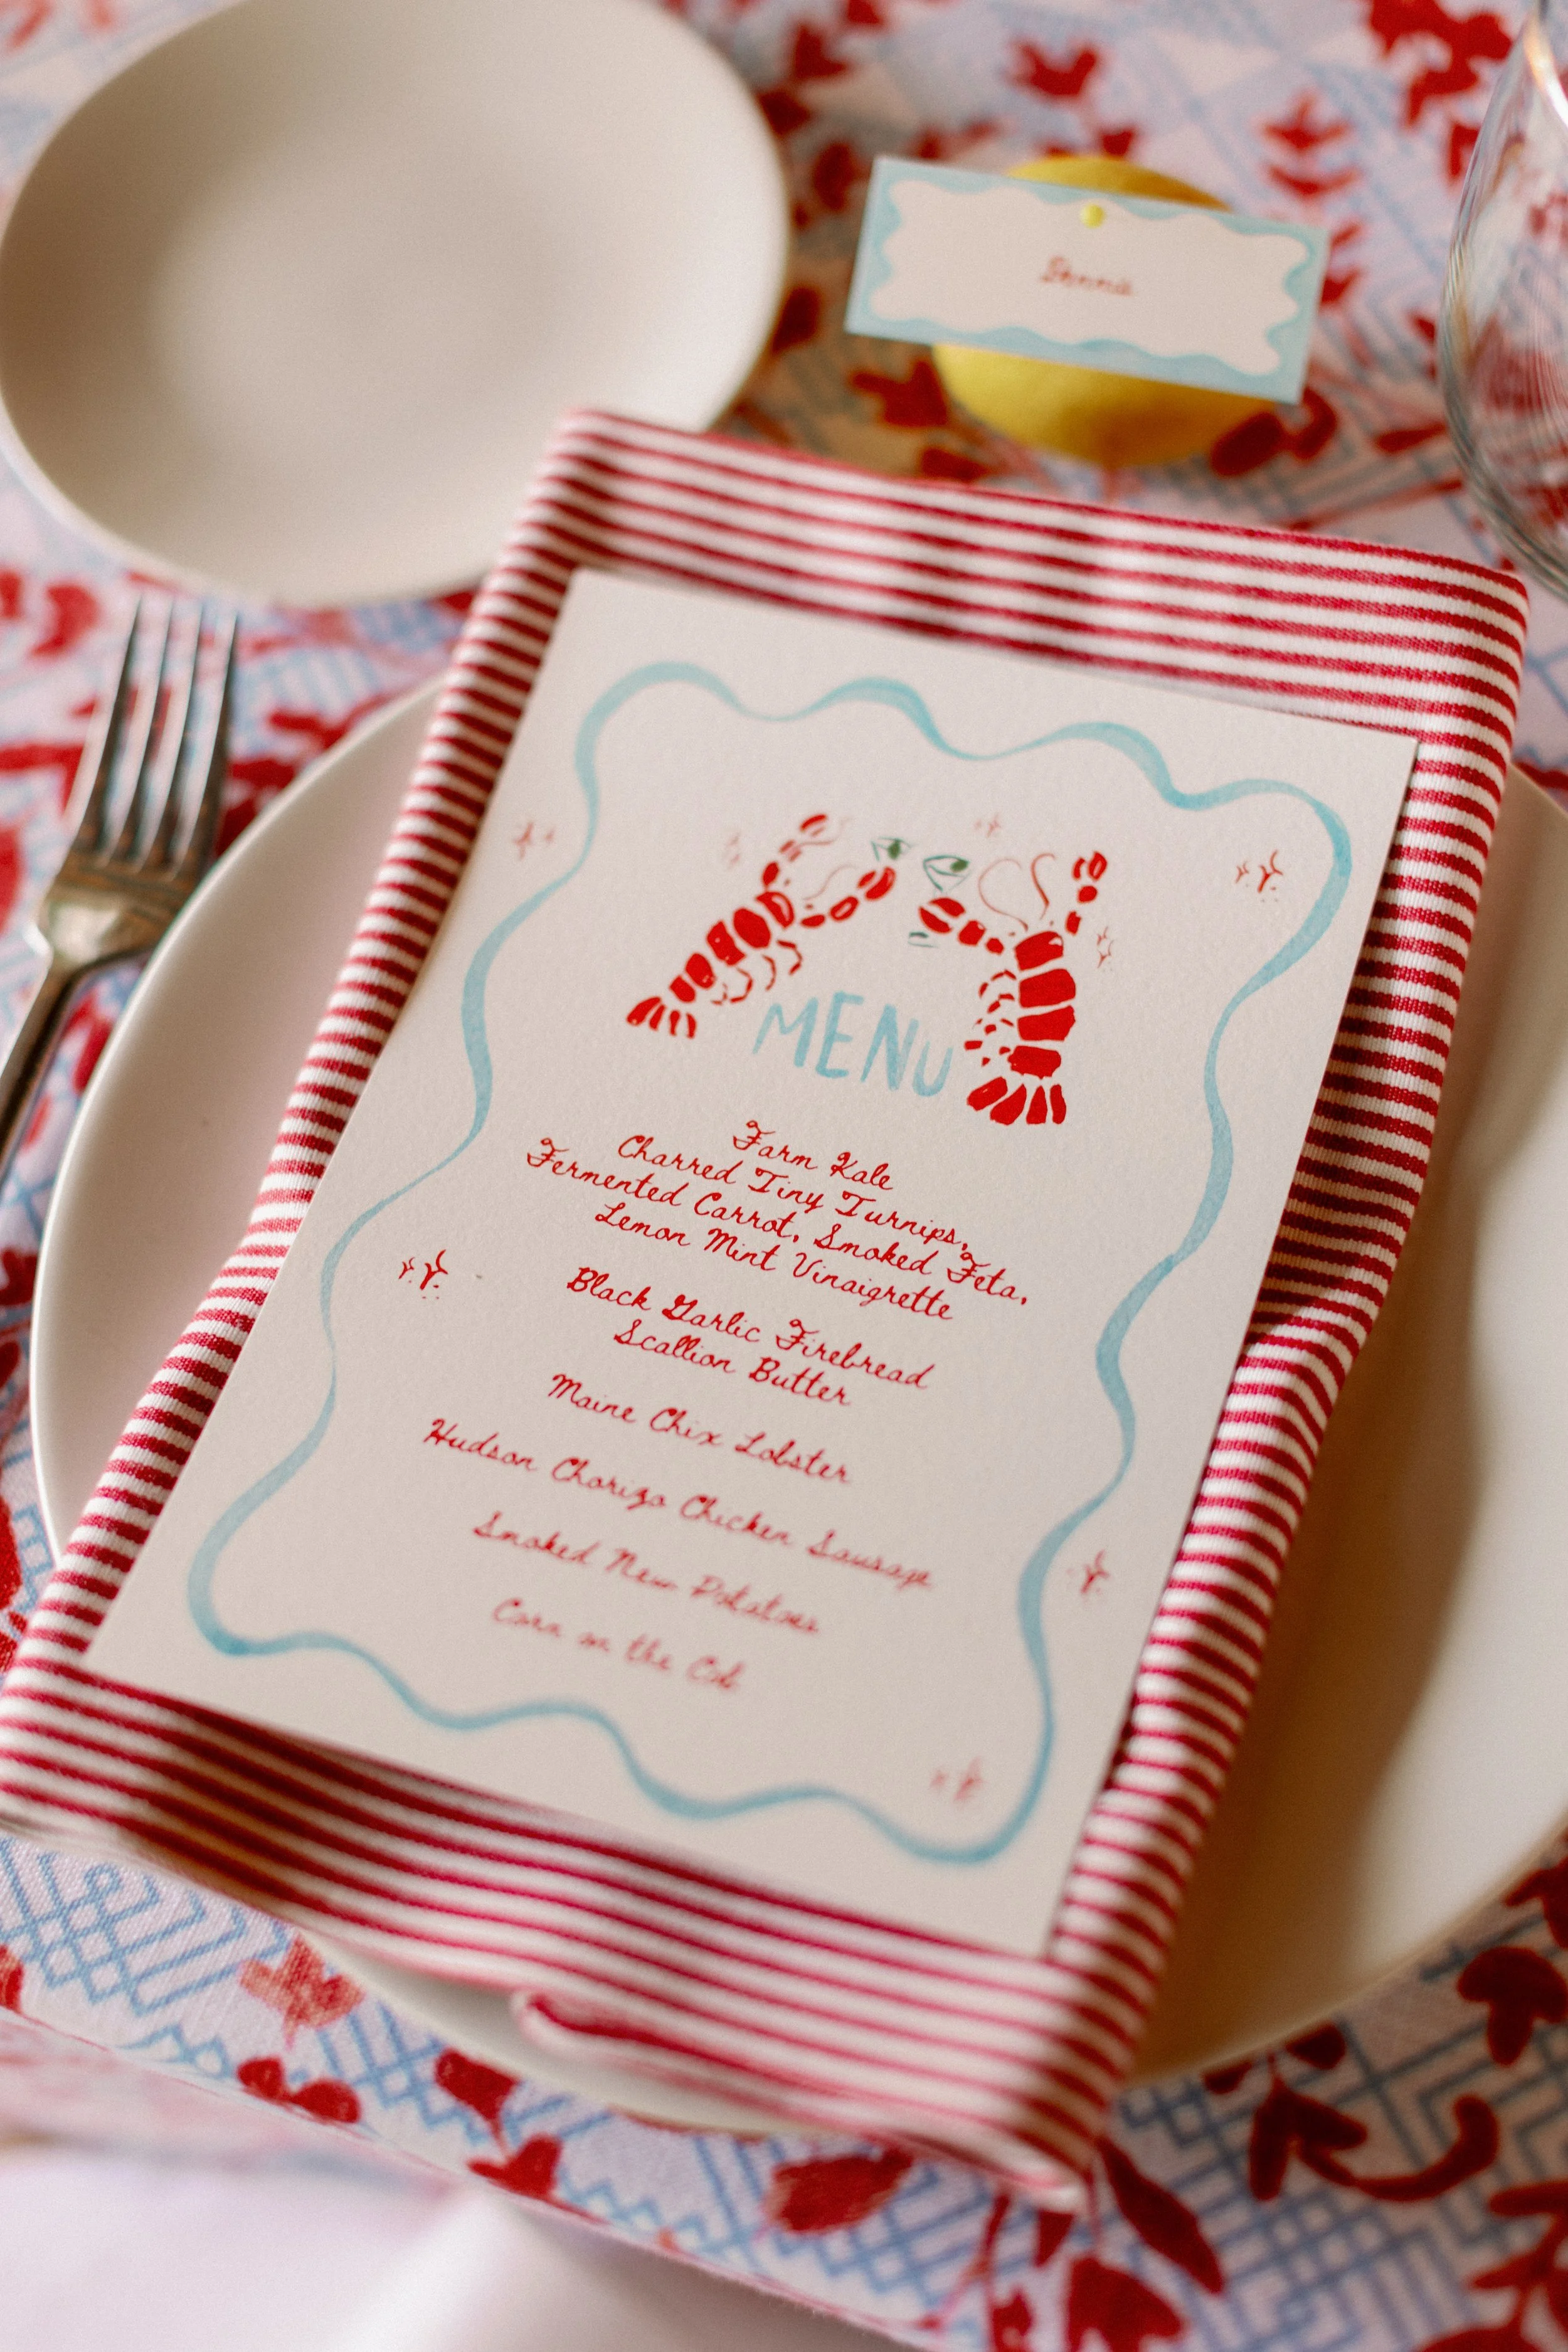 Dennis
MENU
Farm Kale
Charred Tiny Turnips,
Fermented Carrot, Smoked Feta,
Lemon Mint Vinaigrette
Black Garlic Firebread
Scallion Butter
Maine Chix Lobster
Hudson Chorizo Chicken Sausage
Smoked New Potatoes
Corn on the Cob